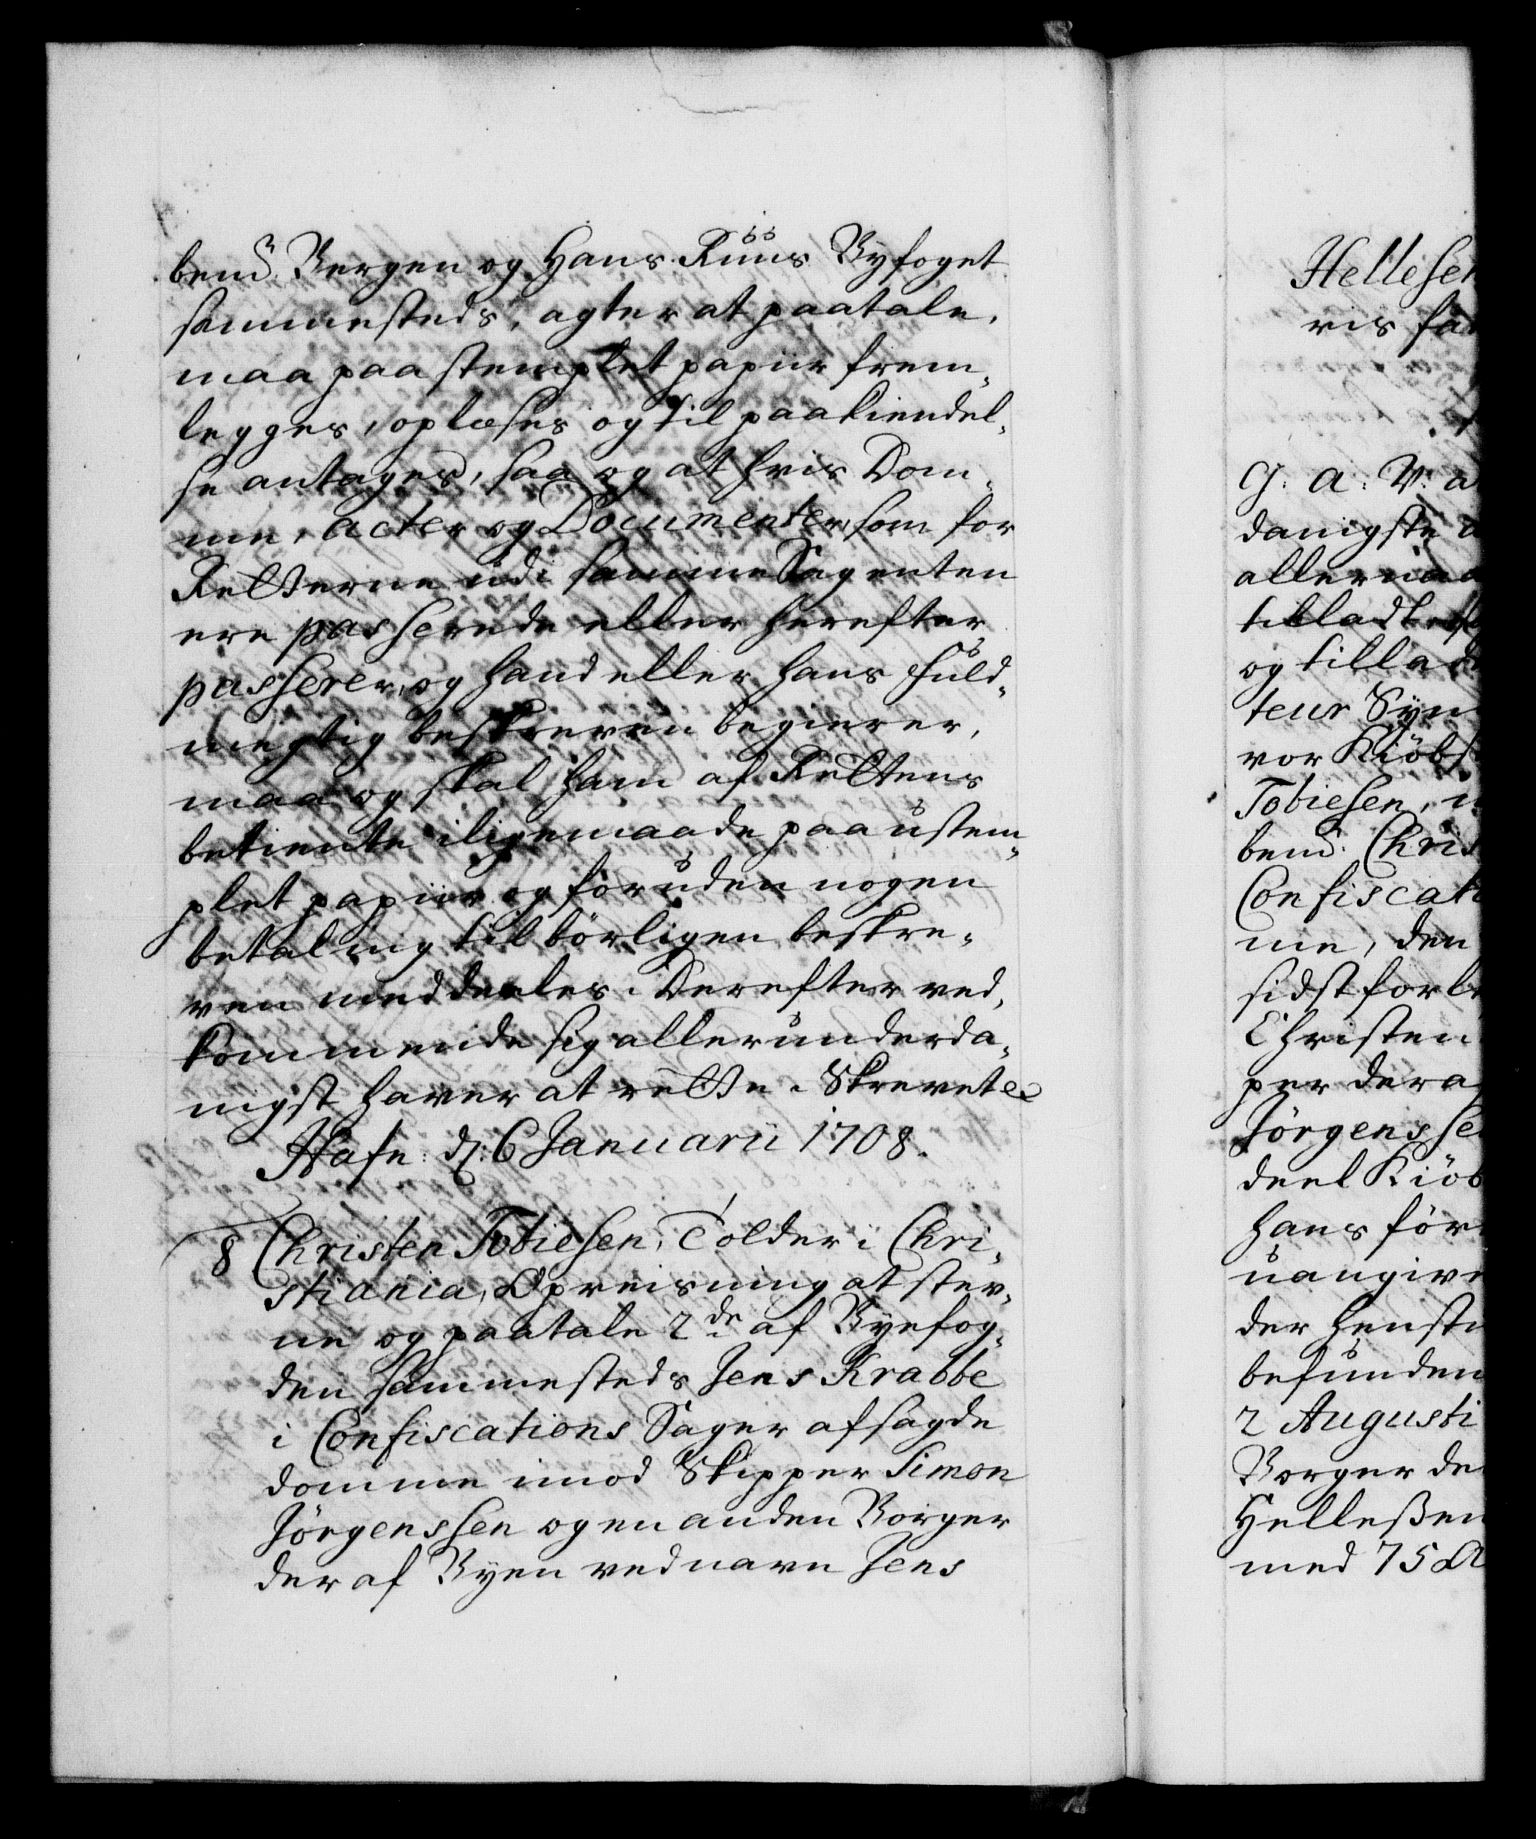 bend. Bergen og Hans Ruus Byfoget
sammesteds, agter at paatale,
maa paa stemplet papiir frem,
legges, oplæses og til paakiendel,
se antages, saa og at hvis Dom,
me, acter og Documenter, som for
Retterne udi samme Sag enten
ere passerede eller herefter
passerer, og hand eller hans fuld,
megtig beskreven begierer,
maa og skal ham af Rettens
betiente iligemaade paa ustem,
plet papiir og foruden nogen
betaling tilbørligen beskre,
ven meddeeles. Derefter ved,
kommende sig allerunderda,
nigst haver at rette. Skrevet ec
Hafn: d: 6 Januarii 1708.
8 Christen Tobiesen, Tolder i Chri,
stiania, Opreisning at stev,
ne og paatale 2de af Byefog,
den sammesteds Jens Krabbe
i Confiscations Sager afsagde
domme imod Skipper Simon
Jørgenssen og en anden Borger
der af Byen ved navn Jens
Hellesen
ris fa
G. A. V. a
danigste a
allernaa
tilladt
og tillad
teur Syn
vor Kiøbs
Tobiesen,
bend. Chris
Confiscati
me, den
sidst forl
Christen
per dera
Jørgensse
deel Kiøb
hans før
uangive
der hensti
befunden
2 Augusti
Borger de
Helleßen
med 75